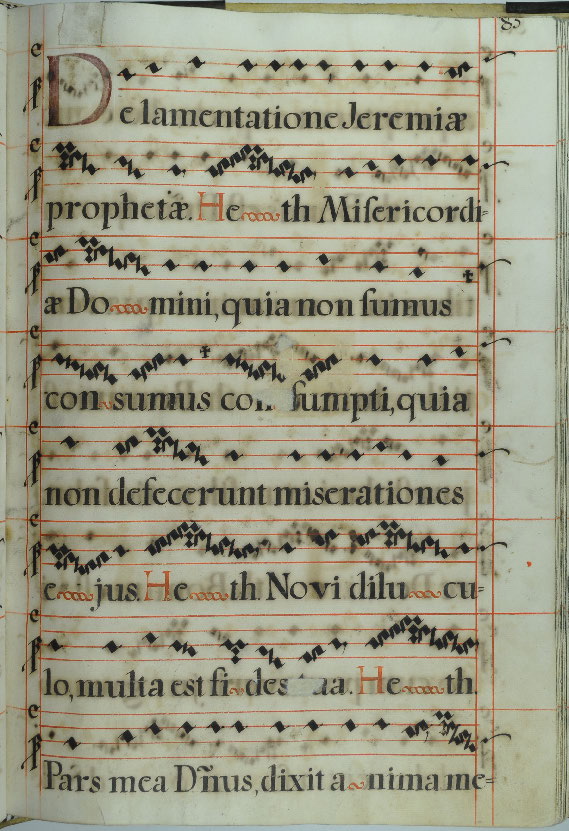 85
De lamentatione Jeremiæ
prophetæ. Heth Miſericordi-
æ Domini, quia non ſumus
consumus con ſumpti, quia
non defecerunt miserationes
ejus. Heth. Novi dilucu-
lo, multa est fides Heth.
Pars mea Dñus, dixit anima me-